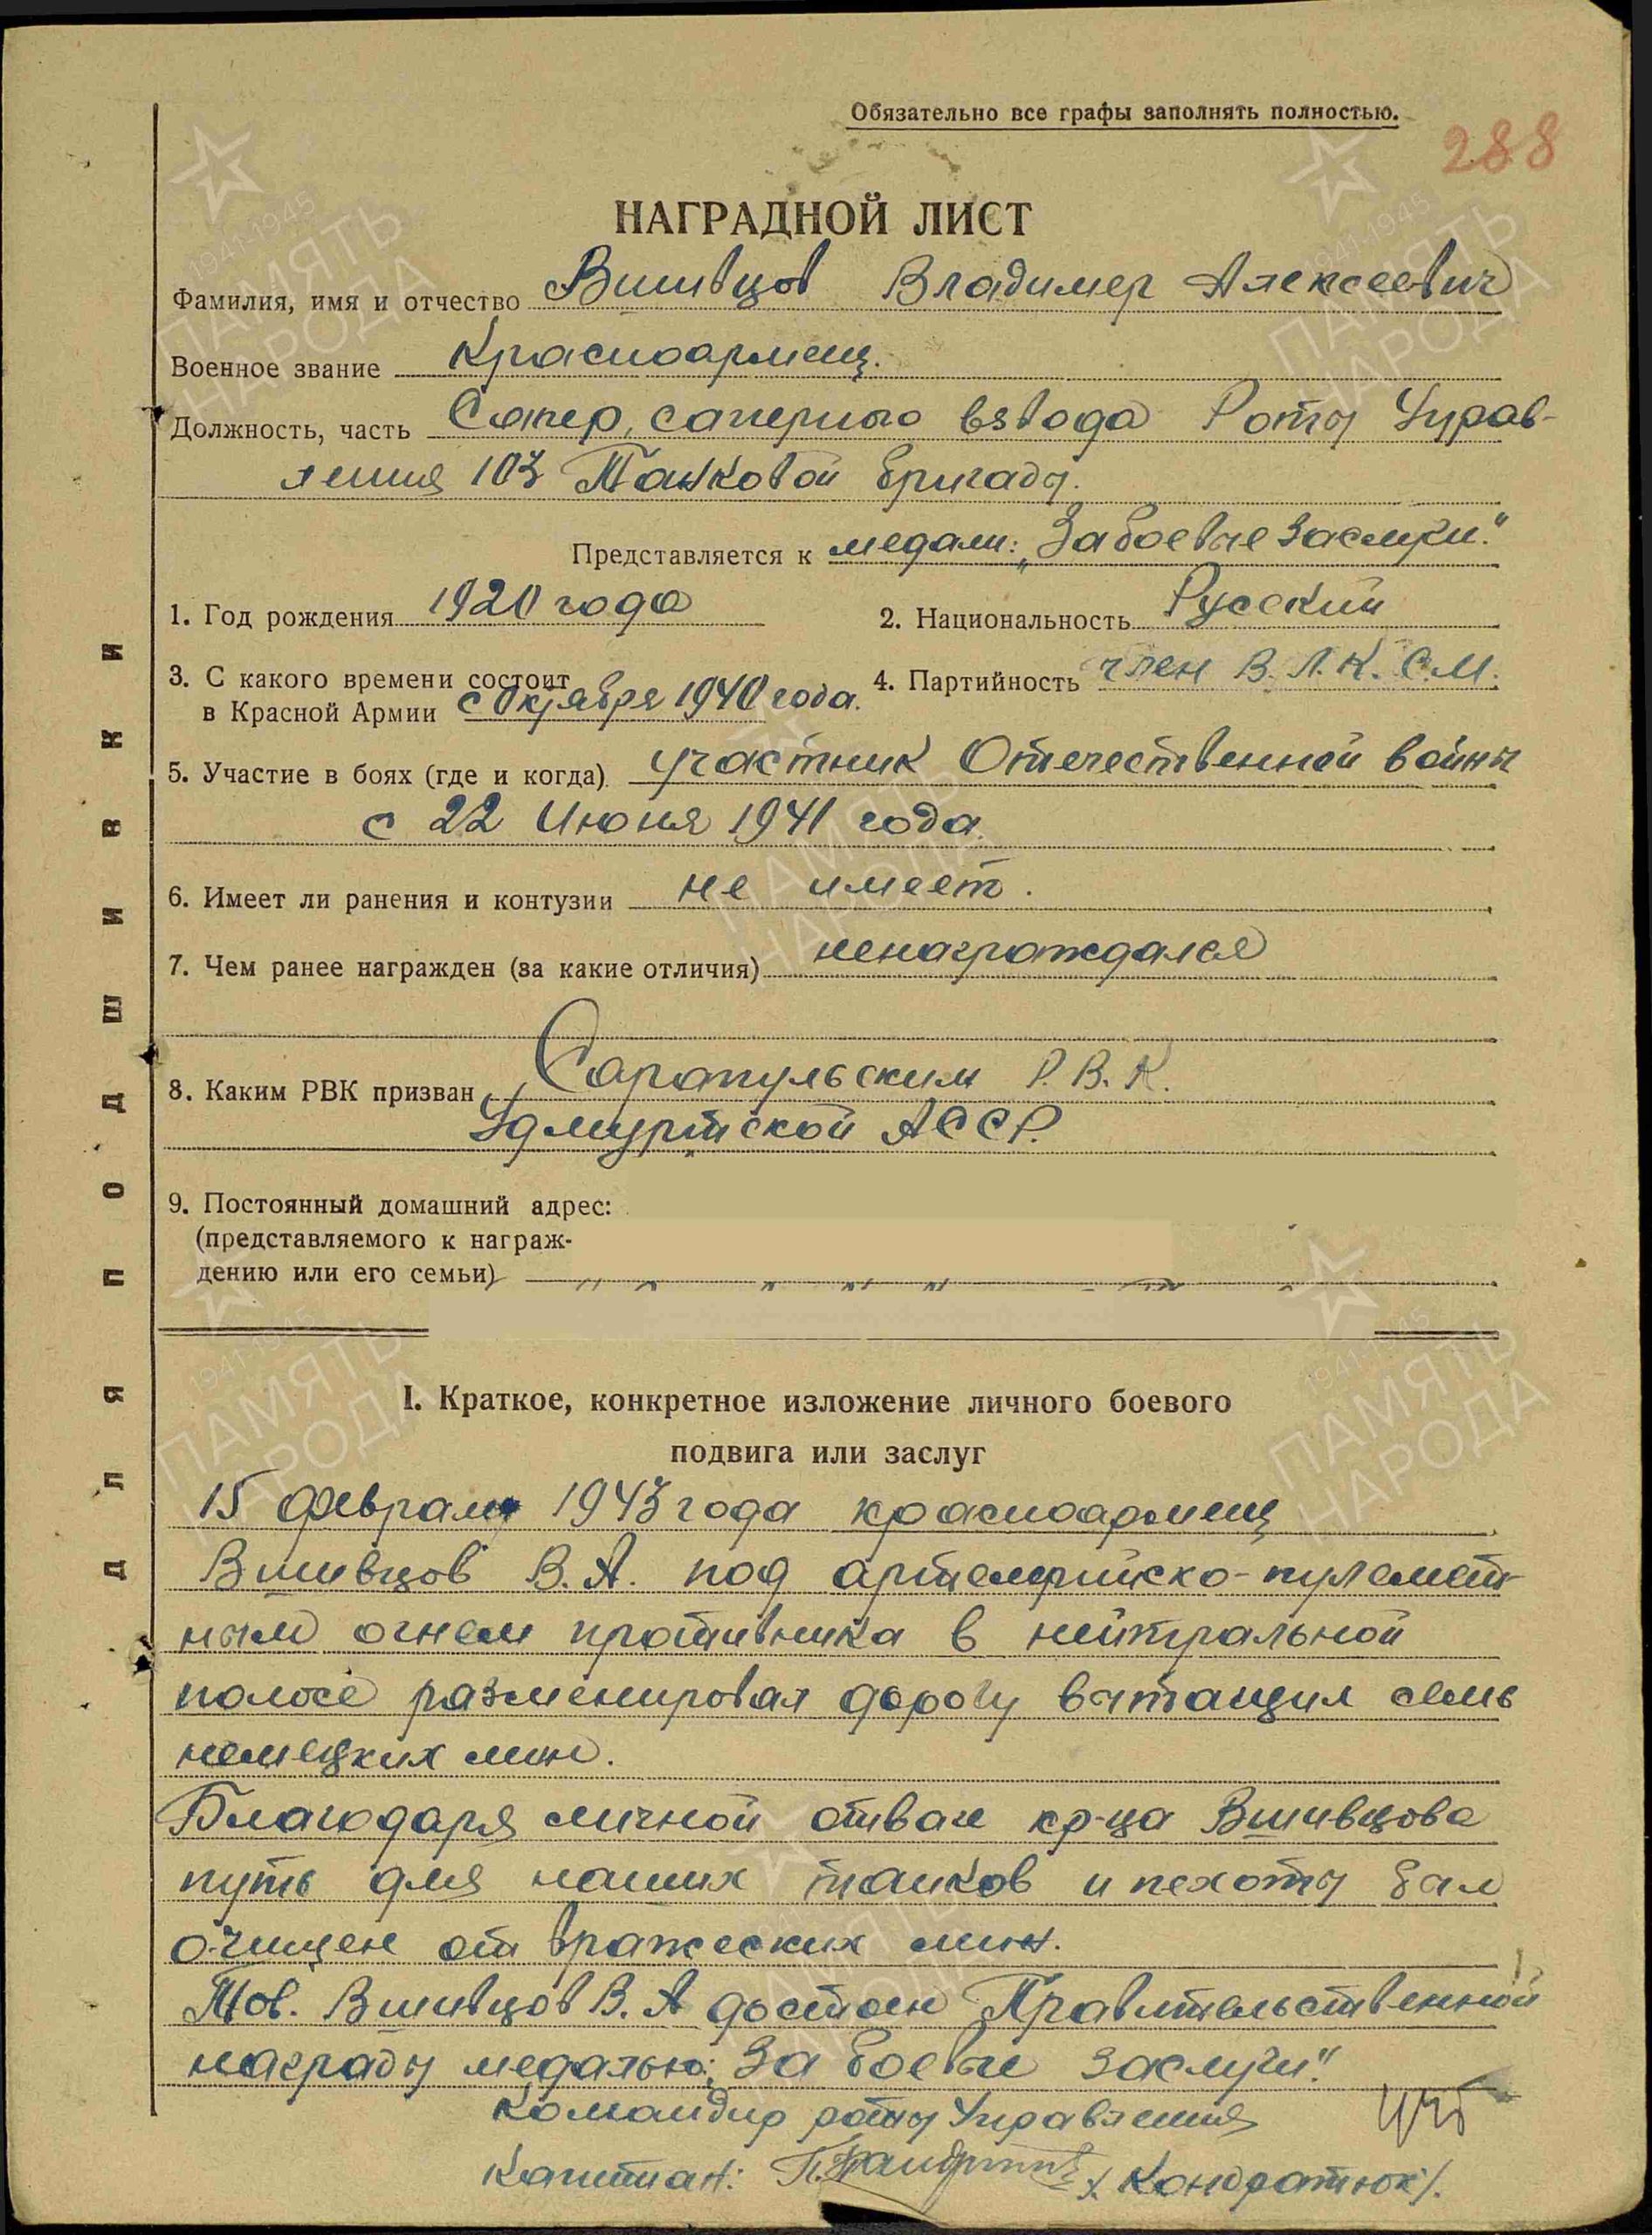 Обязательно все графы заполнять полностью.
288
НАГРАДНОЙ ЛИСТ
Фамилия, имя и отчество Вшивцов Владимер Алексеевич
Военное звание Красноармеец.
Должность, часть Сапер, саперного взвода Роты Управ-
ления 103 Танковой бригады.
Представляется к медали: „За боевые заслуги."
1. Год рождения 1920 года
2. Национальность Русский
3. С какого времени состоит
в Красной Армии с Октября 1940 года.
4. Партийность член В.Л.К.С.М.
5. Участие в боях (где и когда) участник Отечественной войны
с 22 Июня 1941 года.
6. Имеет ли ранения и контузии не имеет.
7. Чем ранее награжден (за какие отличия) ненаграждался
8. Каким РВК призван Сарапульским Р.В.К.
Удмуртской АССР.
9. Постоянный домашний адрес:
(представляемого к награж-
дению или его семьи)
I. Краткое, конкретное изложение личного боевого
подвига или заслуг
15 февраля 1943 года красноармеец
Вшивцов В.А. под артелерийско-пулемет-
ным огнем противника в нейтральной
полосе разменировал дорогу вытащил семь
немецких мин.
Благодаря личной отваге кр-ца Вшивцова
путь для наших танков и пехоты был
очищен от вражеских мин.
Тов. Вшивцов В.А достоен Правительственной
награды медалью: За боевые заслуги."
Командир роты Управления
Капитан: /Кондратюк/.
ДЛЯ ПОДШИВКИ
1941-1945
ПАМЯТЬ
НАРОДА